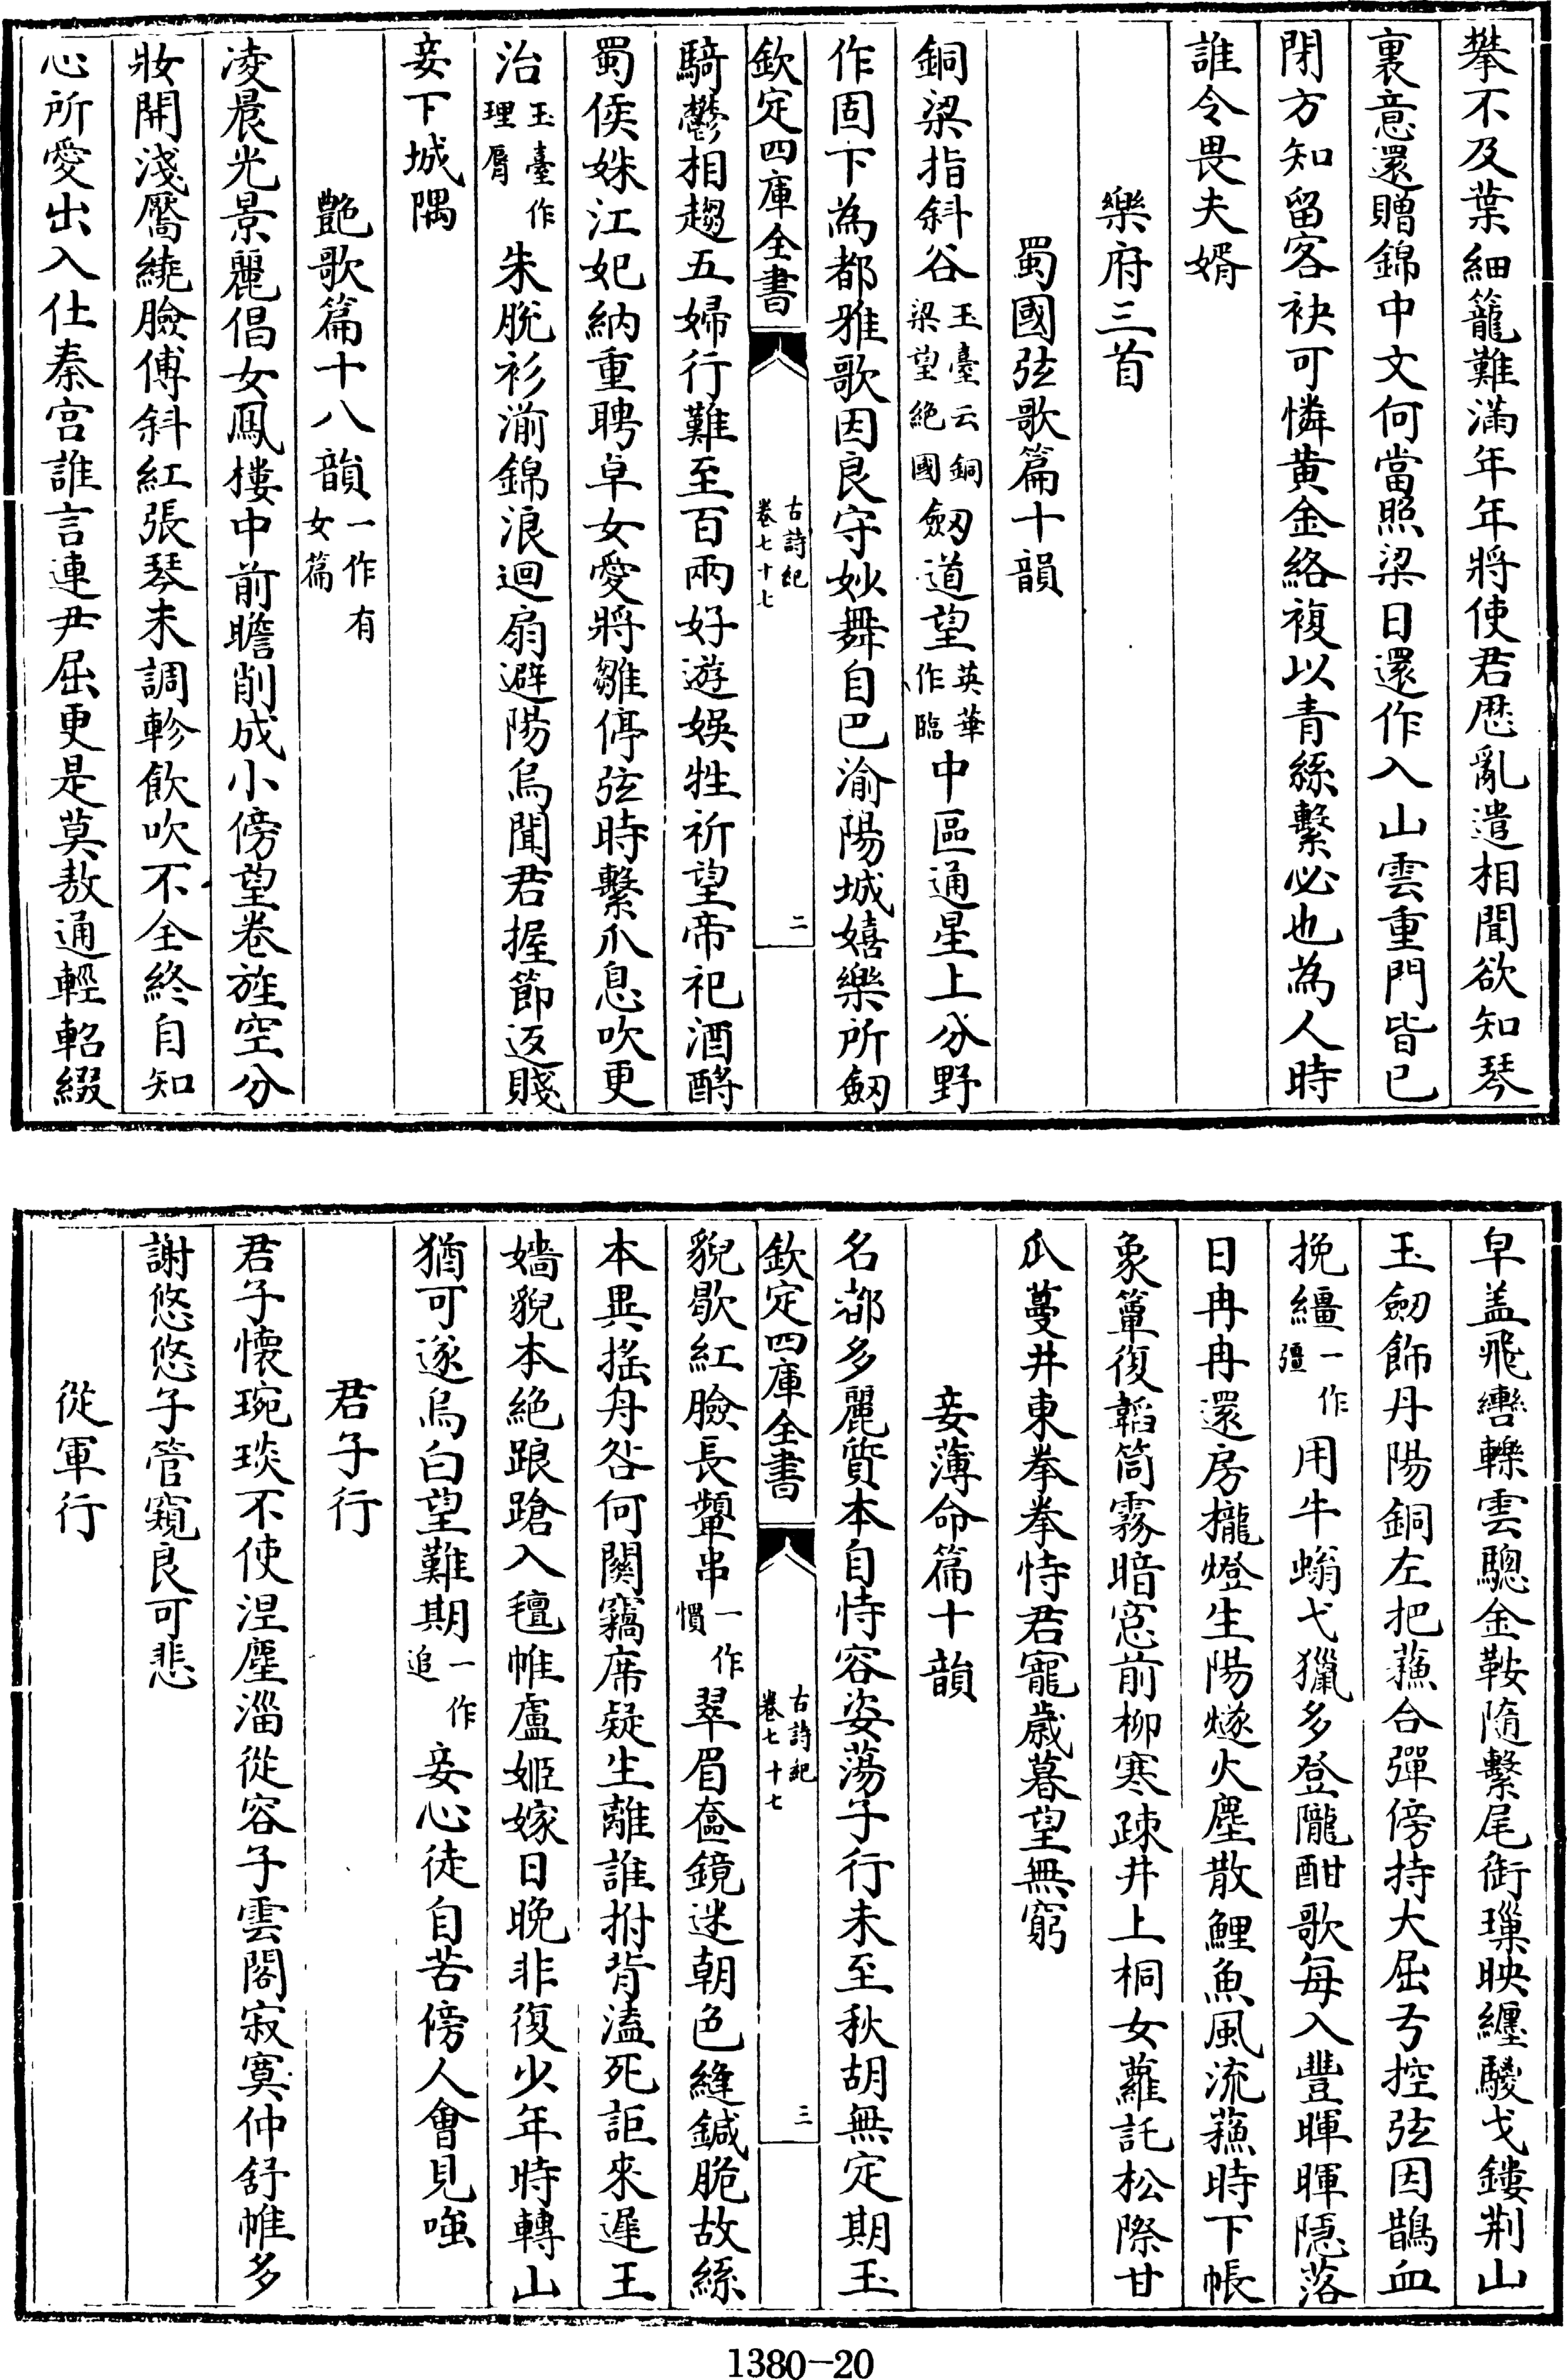 攀不及葉細籠難滿年年將使君歴亂遣相聞欲知琴
裏意還贈錦中文何當照梁日還作入山雲重門皆已
閉方知留客袂可憐黃金絡複以青絲繫必也為人時
誰令畏夫婿
樂府三首
蜀國弦歌篇十韻
銅梁指斜谷玉臺云銅梁望絶國劔道望英華作臨中區通星上分野
作固下為都雅歌因良守妙舞自巴渝陽城嬉樂所劔
欽定四庫全書 古詩紀 卷七十七 二
騎鬱相趨五婦行難至百兩好遊娛牲祈望帝祀酒酹
蜀侯姝江妃納重聘卓女愛將雛停弦時繫爪息吹更
治玉臺作理脣朱脫衫湔錦浪迴扇避陽烏聞君握節返賤
妾下城隅
艷歌篇十八韻一作有女篇
凌晨光景麗倡女鳳樓中前瞻削成小傍望卷旌空分
妝開淺靨繞臉傅斜紅張琴未調軫飲吹不全終自知
心所愛出入仕秦宮誰言連尹屈更是莫敖通輕軺綴
皁盖飛轡轢雲驄金鞍隨繫尾銜璅映纏騣戈鏤荆山
玉劔飾丹陽銅左把蘓合彈傍持大屈弓控弦因鵲血
挽繮一作彊用牛螉弋獵多登隴酣歌每入豐暉暉隱落
日冉冉還房櫳燈生陽燧火塵散鯉魚風流蘓時下帳
象簟復韜筒霧暗窓前柳寒疎井上桐女蘿託松際甘
瓜蔓井東拳拳恃君寵歳暮望無窮
妾薄命篇十韻
名都多麗質本自恃容姿蕩子行未至秋胡無定期玉
欽定四庫全書 古詩紀 卷七十七 三
貌歇紅臉長顰串一作慣翠眉奩鏡迷朝色縫鍼脆故絲
本異揺舟咎何關竊席疑生離誰拊背溘死詎來遲王
嬙貌本絶踉蹌入氊帷盧姬嫁日晚非復少年時轉山
猶可遂烏白望難期一作追妾心徒自苦傍人會見嗤
君子行
君子懷琬琰不使涅塵淄從容子雲閣寂寞仲舒帷多
謝悠悠子管窺良可悲
從軍行
1380-20